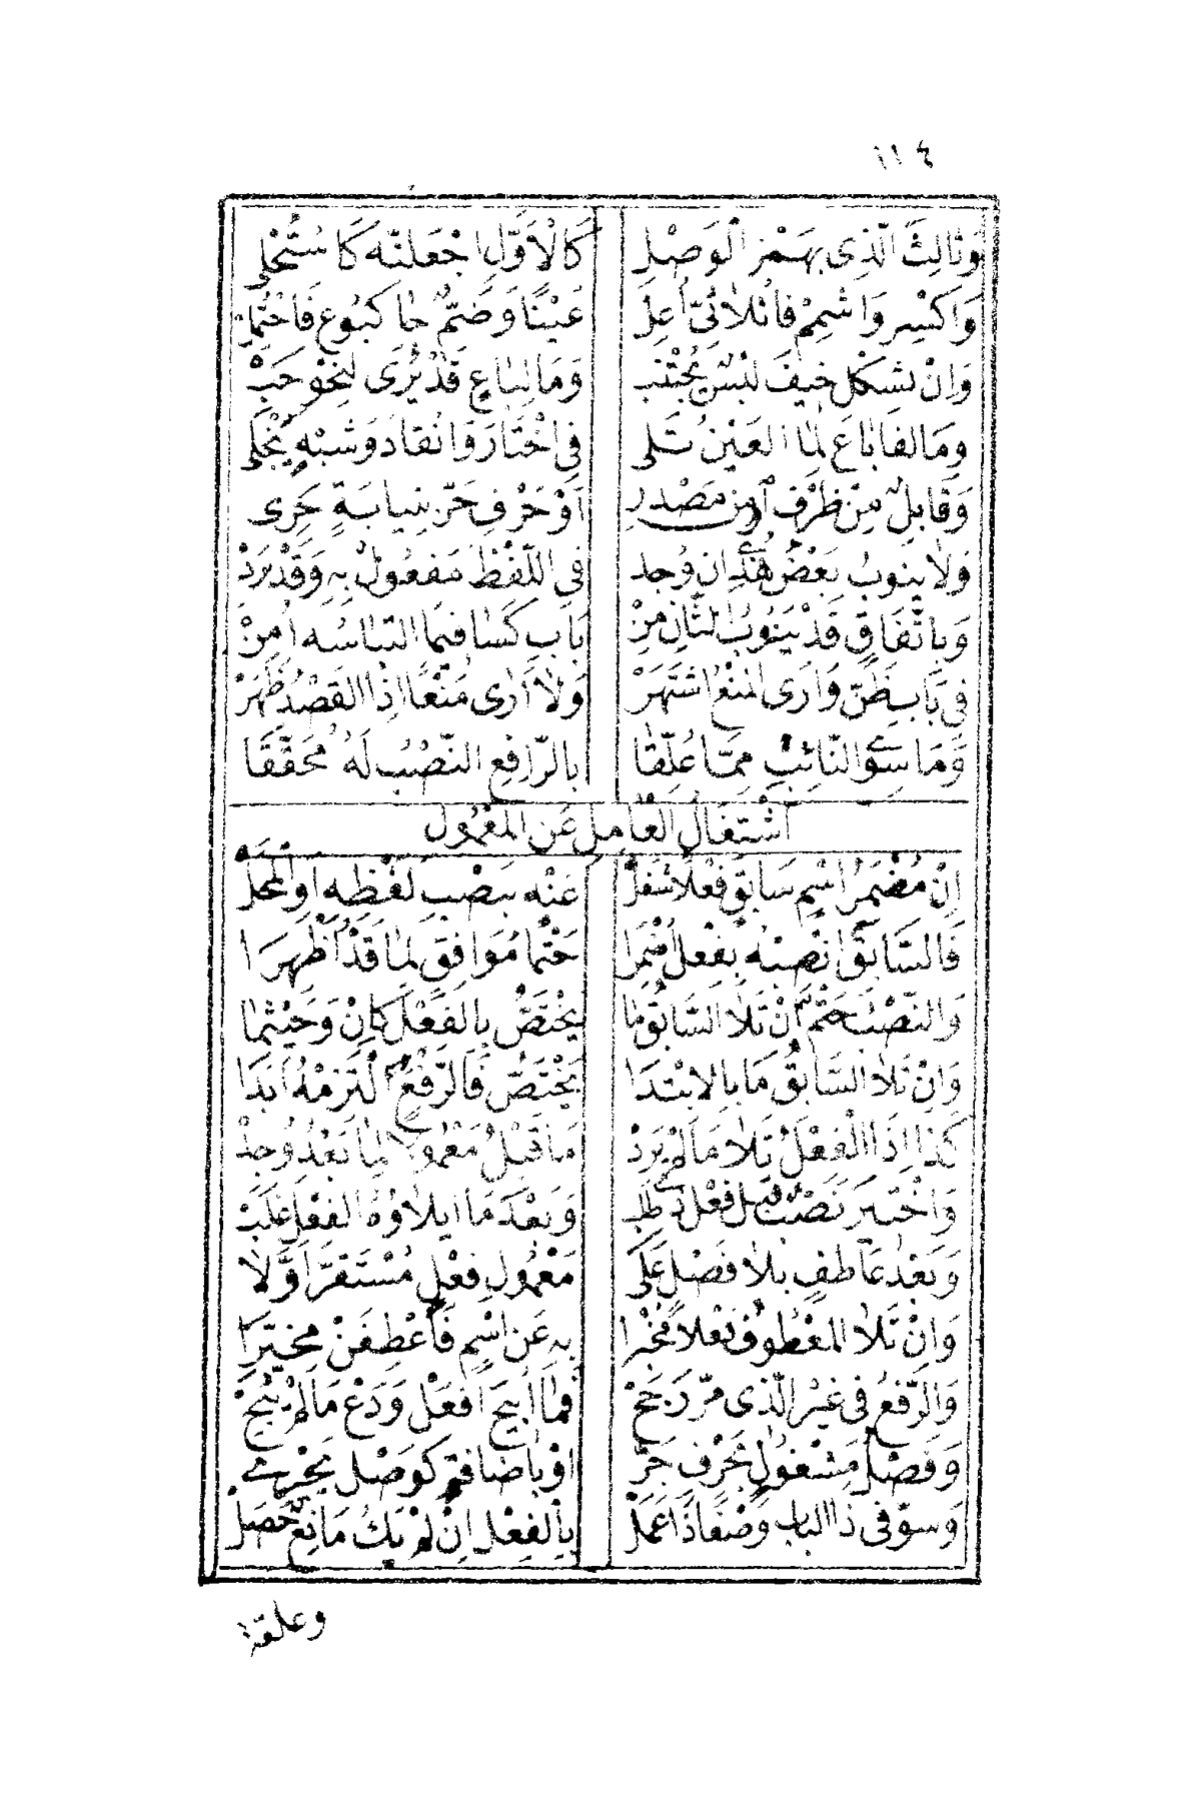 ١١٤
وَثَالِثَ الَّذِى بِهَمْزِ الْوَصْلِ كَالْاَوَّلِ اجْعَلَنَّهُ كَاسْتُحْلِى
وَاكْسِرْ وَاشْمِمْ فَا ثُلَاثِىٍّ اُعِلْ عَيْنًا وَضَمٌّ جَا كَبُوعَ فَاحْتُمِلْ
وَاِنْ بِشَكْلٍ خِيفَ لَبْسٌ يُجْتَنَبْ وَمَا لِبَاعَ قَدْ يُرَى لِنَحْوِ حَبْ
وَمَا لِفَا بَاعَ لِمَا الْعَيْنُ تَلِى فِى اخْتَارَ وَانْقَادَ وَشِبْهٍ يَنْجَلِى
وَقَابِلٌ مِنْ ظَرْفٍ اَوْ مِنْ مَصْدَرِ اَوْ حَرْفِ جَرٍّ بِنِيَابَةٍ حَرِى
وَلَا يَنُوبُ بَعْضُ هٰذِى اِنْ وُجِدْ فِى اللَّفْظِ مَفْعُولٌ بِهِ وَقَدْ يَرِدْ
وَبِاتِّفَاقٍ قَدْ يَنُوبُ الثَّانِ مِنْ بَابِ كَسَا فِيمَا الْتِبَاسُهُ اُمِنْ
فِى بَابِ ظَنَّ وَاَرَى الْمَنْعُ اشْتَهَرْ وَلَا اَرَى مَنْعًا اِذَا الْقَصْدُ ظَهَرْ
وَمَا سِوَى النَّائِبِ مِمَّا عُلِّقَا بِالرَّافِعِ النَّصْبُ لَهُ مُحَقَّقَا
اِشْتِغَالُ الْعَامِلِ عَنِ الْمَعْمُولِ
اِنْ مُضْمَرُ اسْمٍ سَابِقٍ فِعْلًا شَغَلْ عَنْهُ بِنَصْبِ لَفْظِهِ اَوِ الْمَحَلْ
فَالسَّابِقَ انْصِبْهُ بِفِعْلٍ اُضْمِرَا حَتْمًا مُوَافِقٍ لِمَا قَدْ اُظْهِرَا
وَالنَّصْبُ حَتْمٌ اِنْ تَلَا السَّابِقُ مَا يَخْتَصُّ بِالْفِعْلِ كَاِنْ وَحَيْثُمَا
وَاِنْ تَلَا السَّابِقُ مَا بِالْاِبْتِدَا يَخْتَصُّ فَالرَّفْعَ الْتَزِمْهُ اَبَدَا
كَذَا اِذَا الْفِعْلُ تَلَا مَا لَمْ يَرِدْ مَا قَبْلُ مَعْمُولًا لِمَا بَعْدُ وُجِدْ
وَاخْتِيرَ نَصْبٌ قَبْلَ فِعْلٍ ذِى طَلَبْ وَبَعْدَ مَا اِيلَاؤُهُ الْفِعْلَ غَلَبْ
وَبَعْدَ عَاطِفٍ بِلَا فَصْلٍ عَلَى مَعْمُولِ فِعْلٍ مُسْتَقِرٍّ اَوَّلَا
وَاِنْ تَلَا الْمَعْطُوفُ فِعْلًا مُخْبَرَا بِهِ عَنِ اسْمٍ فَاعْطِفَنْ مُخَيَّرَا
وَالرَّفْعُ فِى غَيْرِ الَّذِى مَرَّ رَجَحْ فَمَا اُبِيحَ افْعَلْ وَدَعْ مَا لَمْ يُبَحْ
وَفَصْلُ مَشْغُولٍ بِحَرْفِ جَرٍّ اَوْ بِاِضَافَةٍ كَوَصْلٍ يَجْرِى
وَسَوِّ فِى ذَا الْبَابِ وَصْفًا ذَا عَمَلْ بِالْفِعْلِ اِنْ لَمْ يَكُ مَانِعٌ حَصَلْ
وعلقة